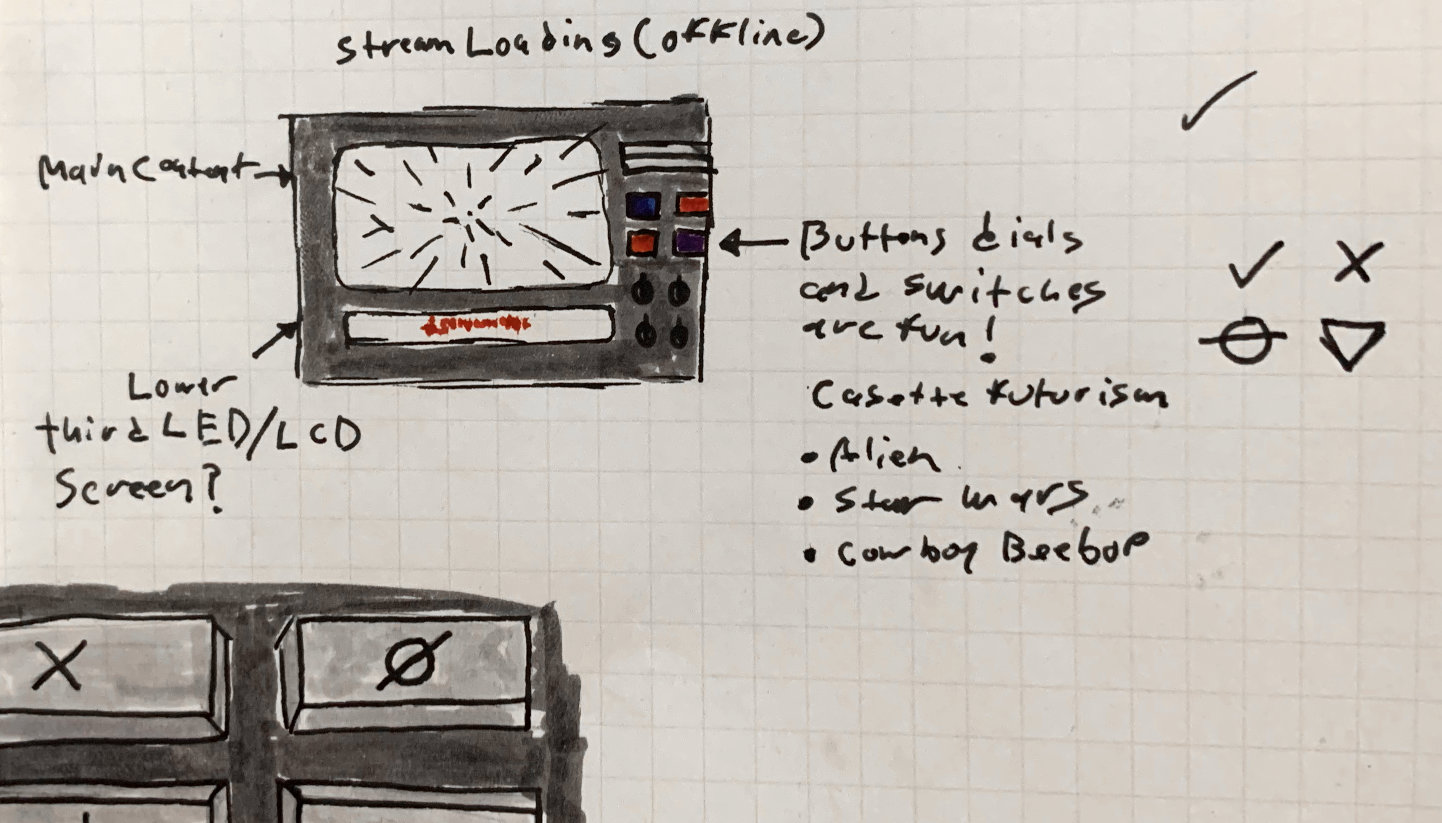 Stream Loading (offline)
Main Content
Buttons dials
and switches
are fun!
Casette futurism
• Alien
• Star wars
• Cowboy Beebop
Lower
third LED/LCD
Screen?